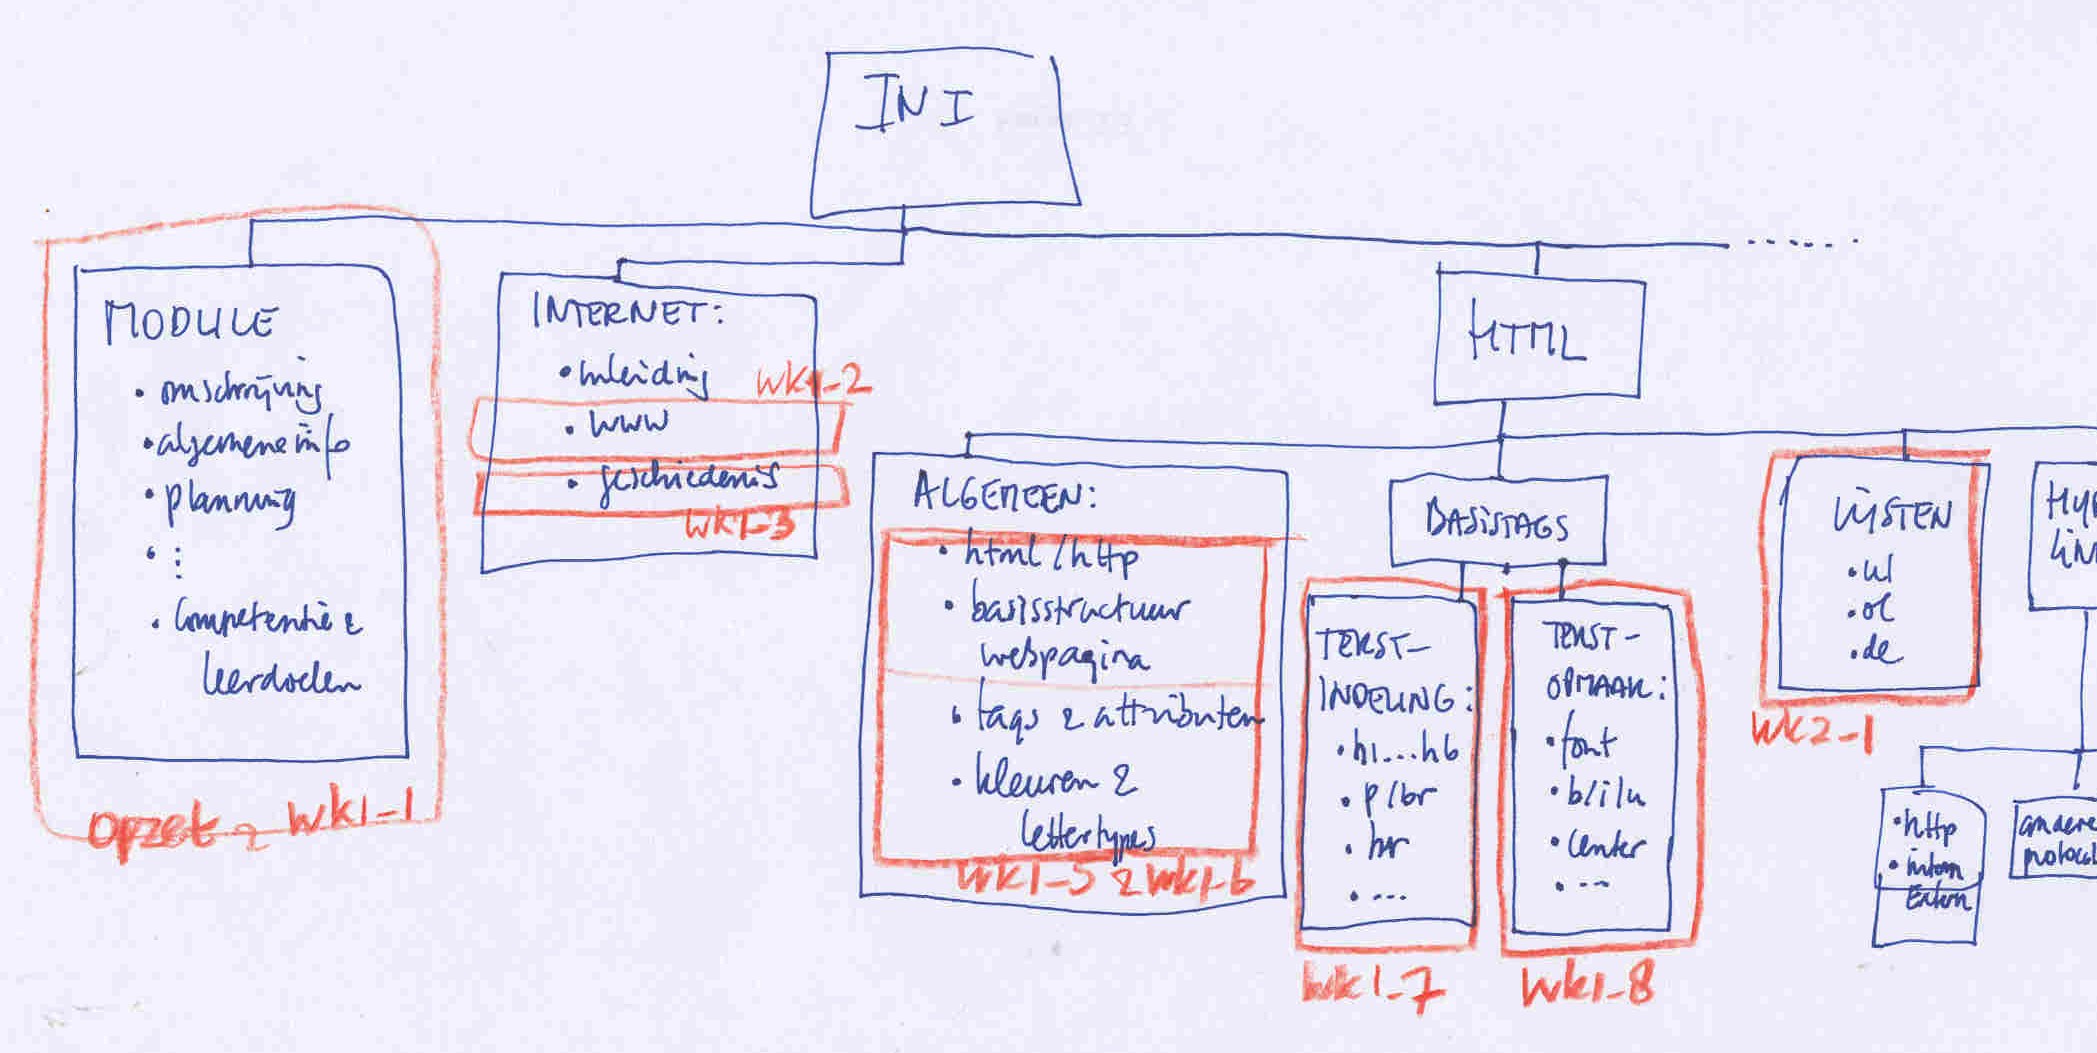 INI
MODULE
• omschrijving
• algemene info
• planning
• :
• Competentie &
leerdoelen
Opzet & wk1-1
INTERNET:
• inleiding
wk1-2
• www
• geschiedenis
wk1-3
HTML
ALGEMEEN:
• html/http
• basisstructuur
webpagina
• tags & attributen
• kleuren &
lettertypes
wk1-5 & wk1-6
BASISTAGS
TEKST-
INDELING:
• h1...h6
• p/br
• hr
• ...
wk1-7
TEKST-
OPMAAK:
• font
• b/i/u
• center
• ---
wk1-8
LIJSTEN
• ul
• ol
• de
wk2-1
HYP
LIN
• http
• intern
Extern
andere
protocol